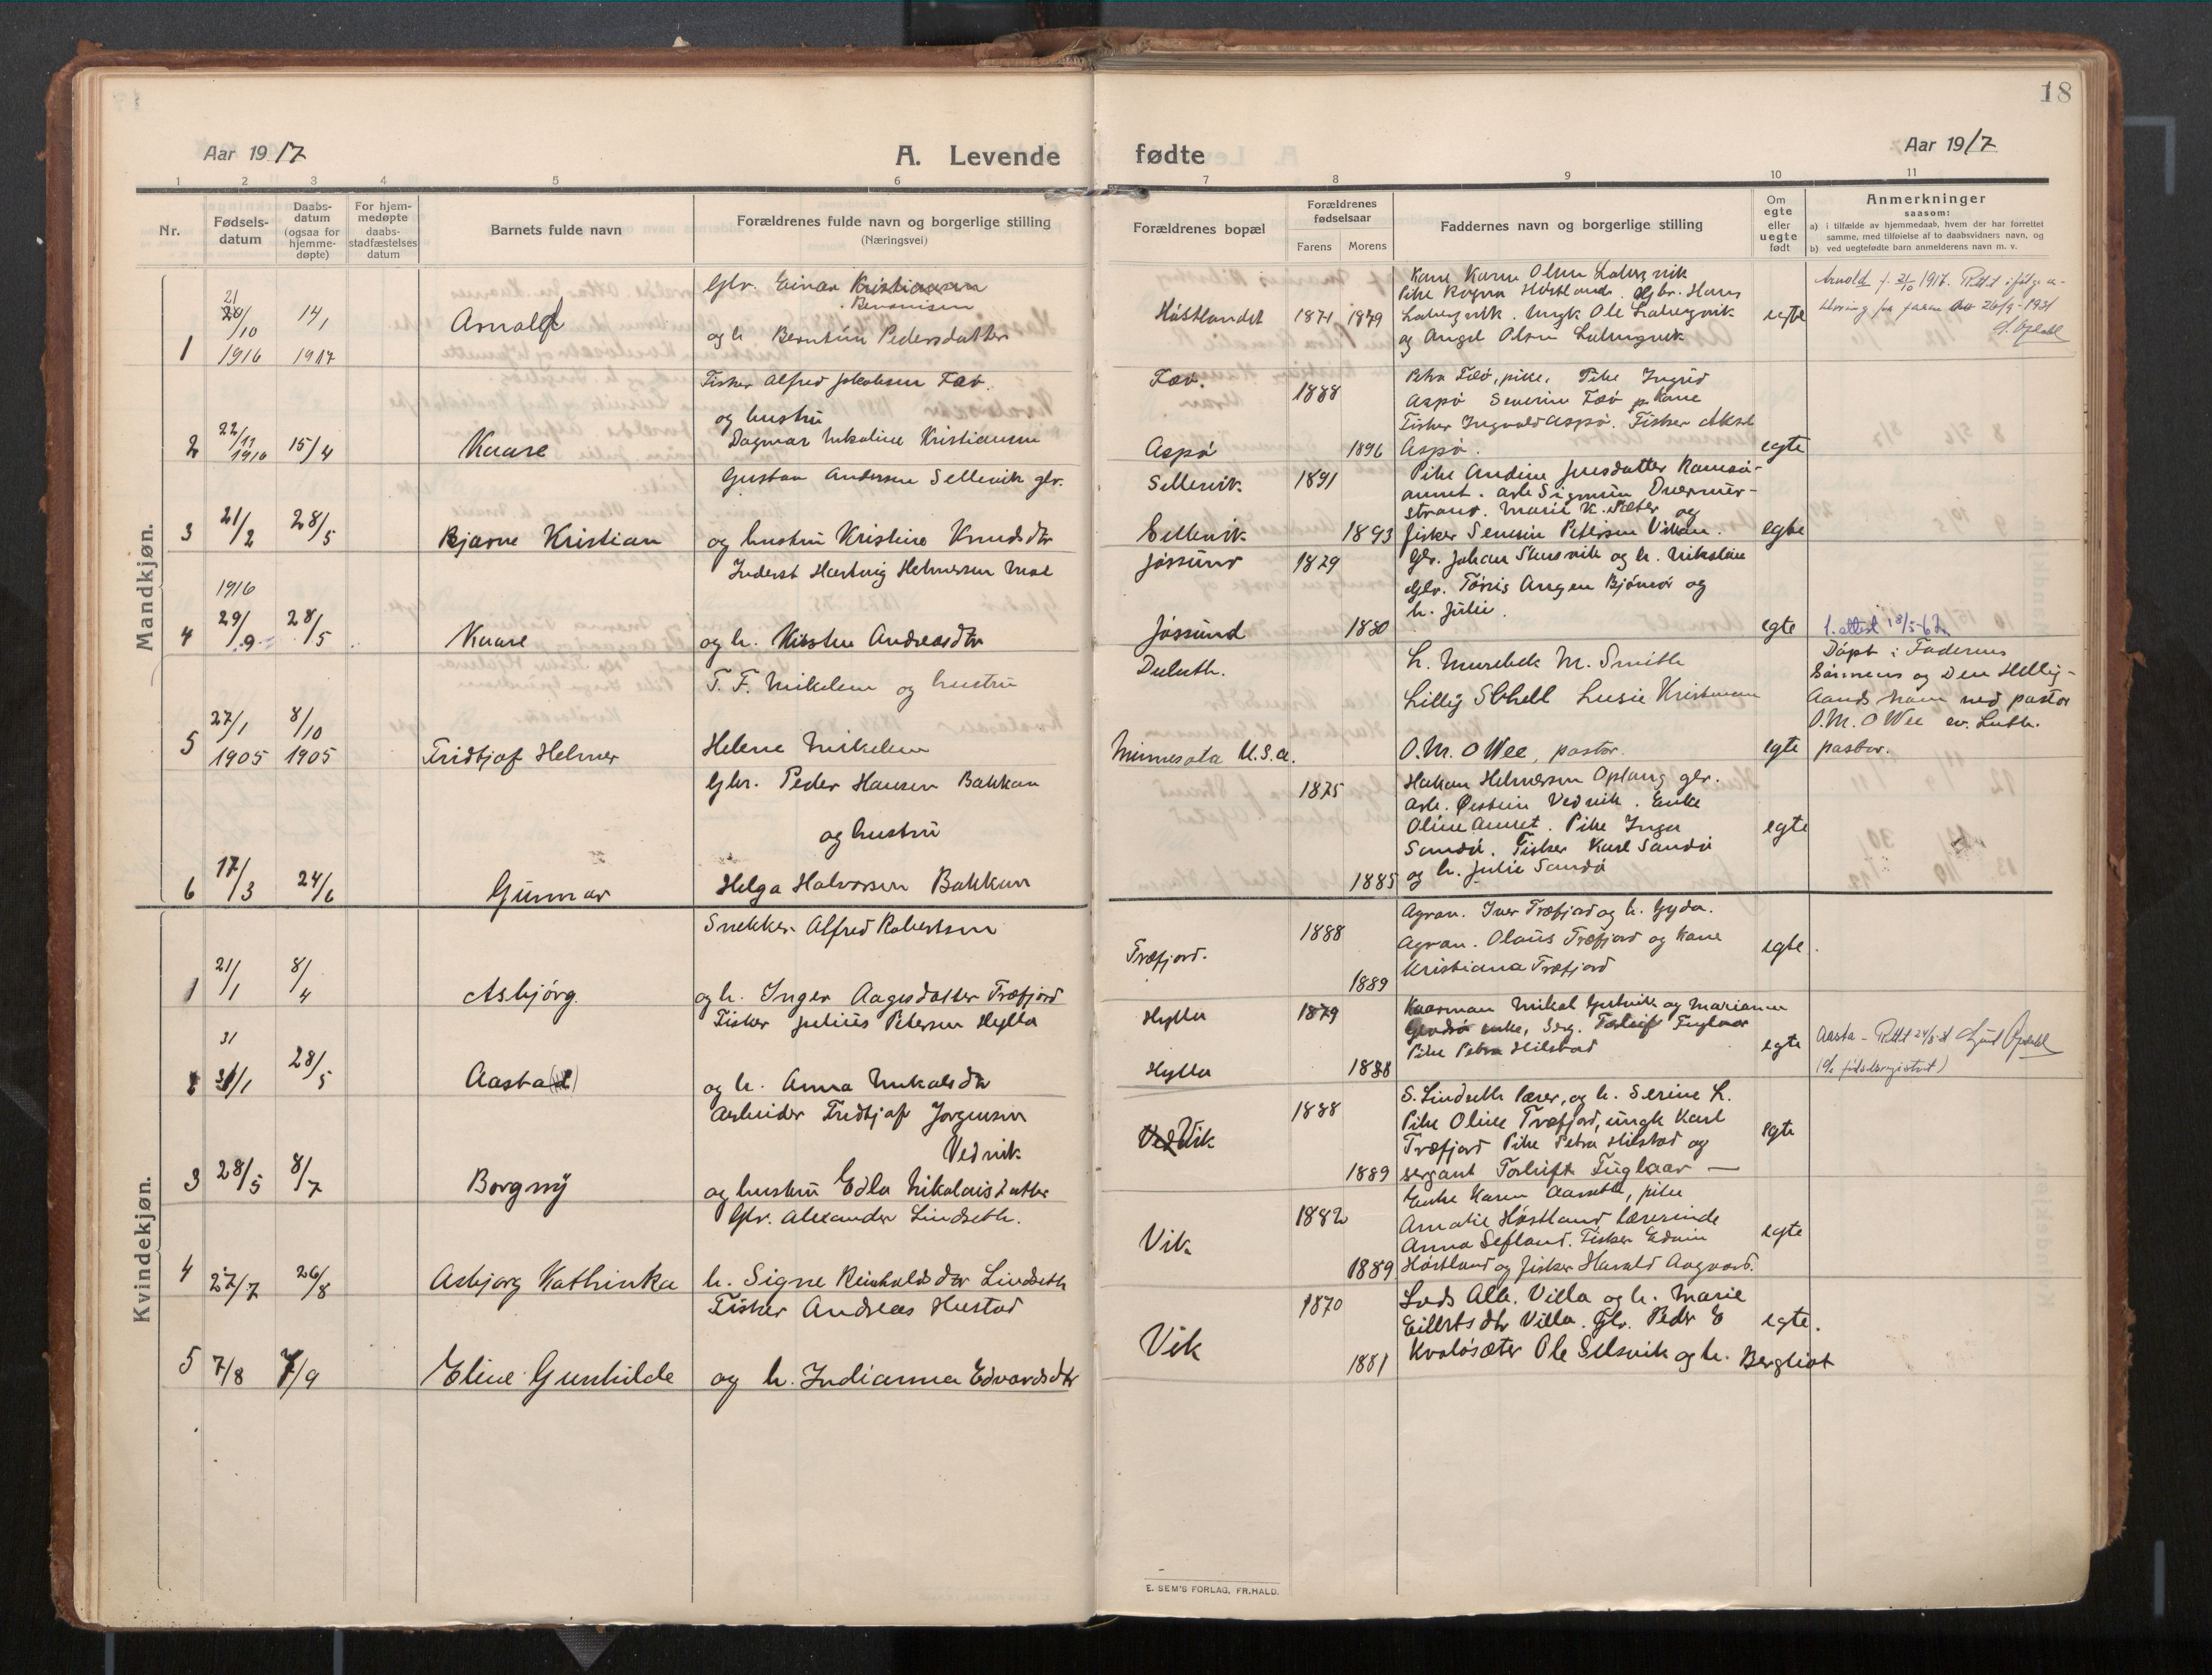 18
Aar 1917
A. Levende fødte
Aar 1917
1 2 3 4 5 6 7 8 9 10 11
Nr.
Fødsels-
datum
Daabs-
datum
(ogsaa for
hjemme-
døpte)
For hjem-
medøpte
daabs-
stadfæstelses
datum
Barnets fulde navn
Forældrenes fulde navn og borgerlige stilling
(Næringsvei)
Forældrenes bopæl
Forældrenes
fødselsaar
Farens Morens
Faddernes navn og borgerlige stilling
Om
egte
eller
uegte
født
Anmerkninger
saasom:
a) i tilfælde av hjemmedaab, hvem der har forrettet
samme, med tilføielse af to daabsvidners navn, og
b) ved uegtefødte barn anmelderens navn m. v.
Mandkjøn.
1
21
20/10
1916
14/1
1917
Arnold
Gbr. Einar Kristiansen
Benonisen
og h. Berntine Pedersdatter
Høstlandet
1871 1879
Kone Karen Olsen
Pike Ragna Høstland. Gbr. Hans
Ungk Ole
og Angel Olsen
egte
Arnold f. 21/10 1916. Rettet ifølge
fra faren 26/9-1931
2
22/11
1916
15/4
Kaare
Fisker Alfred Jakobsen Fæø.
og hustru
Dagmar Nikoline Kristiansen
Fæø.
Aspø
1888
1896
Petra Fæø, pike. Pike Ingrid
Aspø Severin Fæø p. Kone
Fisker Ingvald Aspø. Fisker Aksel
Aspø.
egte
3
21/2
28/5
Bjarne Kristian
Gustav Andersen Sellevik gbr.
og hustru Kristine Knudsdtr
Sellevik
Sellevik
1891
1893
Pike Andine Jensdatter Ramsø-
annet. arb. Sigmun
strand. Marie K. Sæter og
fisker Severin Petersen Vikan.
egte
4
1916
29/9
28/5
Kaare
Inderst Hartvig Helmersen Moe
og h. Kirsten Andreasdtr
Jøssund
Jøssund
1879
1880
Gbr. Johan Stensvik og h. Nikoline
Gbr. Tønis Angen Bjørnør og
h. Julie.
egte
1. attest 18/5-62
5
27/1
1905
8/10
1905
Fridtjof Helmer
T. F. Mikelsen og hustru
Helene Mikelsen
Duluth.
Minnesota U.S.A.
L. Murebek M. Smith
Lillig Schell Lusie Kristensen
O.M. O Wee, pastor.
egte
Døpt i Faderens
Sønnens og Den Hellig-
Aands navn ved pastor
O.M. O Wee ev. Luth.
pastor.
6
17/3
24/6
Gunnar
Gbr. Peder Hansen Bakkan
og hustru
Helga Halvorsen Bakkan
1875
1885
Hakan Helmersen Oplang gbr.
Arb. Øistein Vedvik. Enke
Oline Annet. Pike Inga
Sandø. Fisker Karl Sandø
og h. Julie Sandø
egte
Kvindekjøn.
1
21/1
8/4
Asbjørg.
Snekker Alfred Robertsen
og h. Inger Aagesdatter Træfjord
Træfjord.
1888
1889
Agvan. Iver Træfjord og h. Gyda.
Agvan. Olaus Træfjord og Kone
Kristiana Træfjord
egte.
2
31
31/1
28/5
Aasta
Fisker Julius Petersen Hylla
og h. Anna Nikolaisdtr
Hylla
Hylla
1879
1888
Kaarman Mikal og Marianne
enke, Serg. Torleif Fuglaar
Pike Petra Hilstad
egte
Aasta - Rettet
(cfr. fødselsregistret)
3
28/5
8/7
Borgny
Arbeider Fridtjof Jørgensen
Vedvik
og hustru Edla Nikolaisdatter
VedVik
1888
1889
S. Lindseth lærer, og h. Serine L.
Pike Oline Træfjord, ungk Karl
Træfjord Pike Petra Hilstad og
sergant Torleif Fuglaar —
egte
4
27/7
26/8
Asbjørg Kathinka
Gbr. Alexander Lindseth.
h. Signe Reinholdsdtr Lindseth
Vik
1882
1889
Enke Karen Aarseth, pike
Amalie Høstland lærerinde
Anna Sefland. Fisker Edvin
Høstland og fisker Harald Aagaard.
egte
5
7/8
7/9
Eline Gunhilde
Fisker Andreas Hustad
og h. Indianna Edvardsdtr
Vik
1870
1881
Lods Alb. Villa og h. Marie
Eilertsdtr Villa. Gbr. Peder E
Kvaløsæter Ole Selsvik og h. Bergliot
egte.
E. SEM'S FORLAG, FR.HALD.